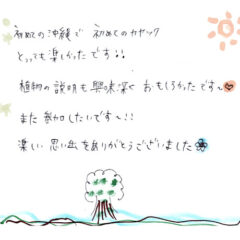 初めての沖縄で 初めてのカヤック
とっても楽しかったです!!
植物の説明も興味深く おもしろかったです〜
また参加したいです〜!!
楽しい思い出をありがとうございました